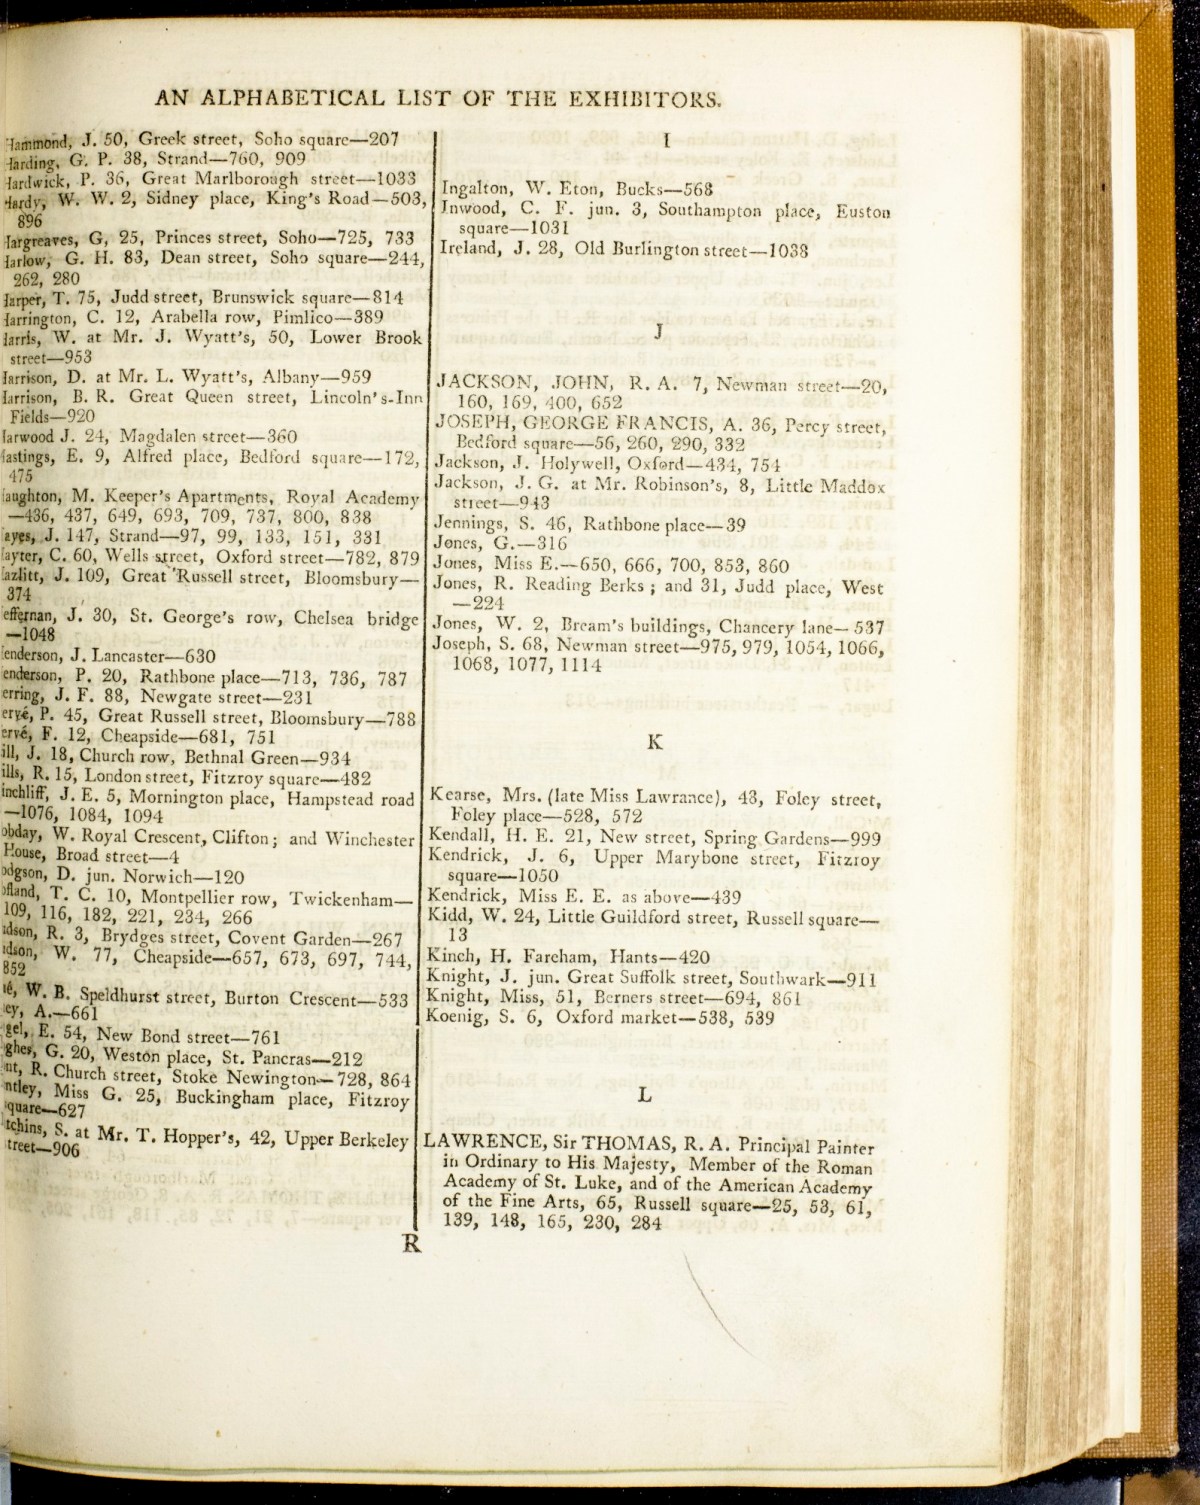 AN ALPHABETICAL LIST OF THE EXHIBITORS.
Hammond, J. 50, Greek street, Soho square—207
Harding, G. P. 38, Strand—760, 909
Hardwick, P. 36, Great Marlborough street—1033
Hardy, W. W. 2, Sidney place, King's Road—503,
896
Hargreaves, G, 25, Princes street, Soho—725, 733
Harlow, G. H. 83, Dean street, Soho square—244,
262, 280
Harper, T. 75, Judd street, Brunswick square—814
Harrington, C. 12, Arabella row, Pimlico—389
Harris, W. at Mr. J. Wyatt's, 50, Lower Brook
street—953
Harrison, D. at Mr. L. Wyatt's, Albany—959
Harrison, B. R. Great Queen street, Lincoln's-Inn
Fields—920
Harwood J. 24, Magdalen street—360
Hastings, E. 9, Alfred place, Bedford square—172,
475
aughton, M. Keeper's Apartments, Royal Academy
—436, 437, 649, 693, 709, 737, 800, 838
ayes, J. 147, Strand—97, 99, 133, 151, 331
ayter, C. 60, Wells street, Oxford street—782, 879
azlitt, J. 109, Great Russell street, Bloomsbury—
374
effernan, J. 30, St. George's row, Chelsea bridge
—1048
enderson, J. Lancaster—630
enderson, P. 20, Rathbone place—713, 736, 787
erring, J. F. 88, Newgate street—231
ervé, P. 45, Great Russell street, Bloomsbury—788
ervé, F. 12, Cheapside—681, 751
ill, J. 18, Church row, Bethnal Green—934
ills, R. 15, London street, Fitzroy square—482
inchliff, J. E. 5, Mornington place, Hampstead road
—1076, 1084, 1094
obday, W. Royal Crescent, Clifton; and Winchester
House, Broad street—4
odgson, D. jun. Norwich—120
ofland, T. C. 10, Montpellier row, Twickenham—
109, 116, 182, 221, 234, 266
udson, R. 3, Brydges street, Covent Garden—267
udson, W. 77, Cheapside—657, 673, 697, 744,
852
ué, W. B. Speldhurst street, Burton Crescent—533
ey, A.—661
gel, E. 54, New Bond street—761
ghes, G. 20, Weston place, St. Pancras—212
nt, R. Church street, Stoke Newington—728, 864
ntley, Miss G. 25, Buckingham place, Fitzroy
square—627
tchins, S. at Mr. T. Hopper's, 42, Upper Berkeley
treet—906
R
I
Ingalton, W. Eton, Bucks—568
Inwood, C. F. jun. 3, Southampton place, Euston
square—1031
Ireland, J. 28, Old Burlington street—1038
J
JACKSON, JOHN, R. A. 7, Newman street—20,
160, 169, 400, 652
JOSEPH, GEORGE FRANCIS, A. 36, Percy street,
Bedford square—56, 260, 290, 332
Jackson, J. Holywell, Oxford—434, 754
Jackson, J. G. at Mr. Robinson's, 8, Little Maddox
street—943
Jennings, S. 46, Rathbone place—39
Jones, G.—316
Jones, Miss E.—650, 666, 700, 853, 860
Jones, R. Reading Berks; and 31, Judd place, West
—224
Jones, W. 2, Bream's buildings, Chancery lane—537
Joseph, S. 68, Newman street—975, 979, 1054, 1066,
1068, 1077, 1114
K
Kearse, Mrs. (late Miss Lawrance), 43, Foley street,
Foley place—528, 572
Kendall, H. E. 21, New street, Spring Gardens—999
Kendrick, J. 6, Upper Marybone street, Fitzroy
square—1050
Kendrick, Miss E. E. as above—439
Kidd, W. 24, Little Guildford street, Russell square—
13
Kinch, H. Fareham, Hants—420
Knight, J. jun. Great Suffolk street, Southwark—911
Knight, Miss, 51, Berners street—694, 861
Koenig, S. 6, Oxford market—538, 539
L
LAWRENCE, Sir THOMAS, R. A. Principal Painter
in Ordinary to His Majesty, Member of the Roman
Academy of St. Luke, and of the American Academy
of the Fine Arts, 65, Russell square—25, 53, 61,
139, 148, 165, 230, 284